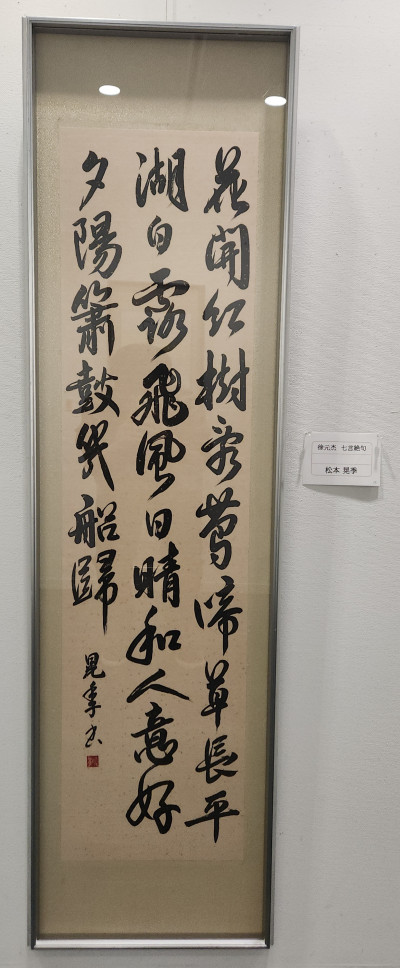 花開紅樹亂鶯啼草長平
湖白露飛風日晴和人意好
夕陽簫鼓幾船歸
晃季書
徐元杰 七言絶句
松本 晃季